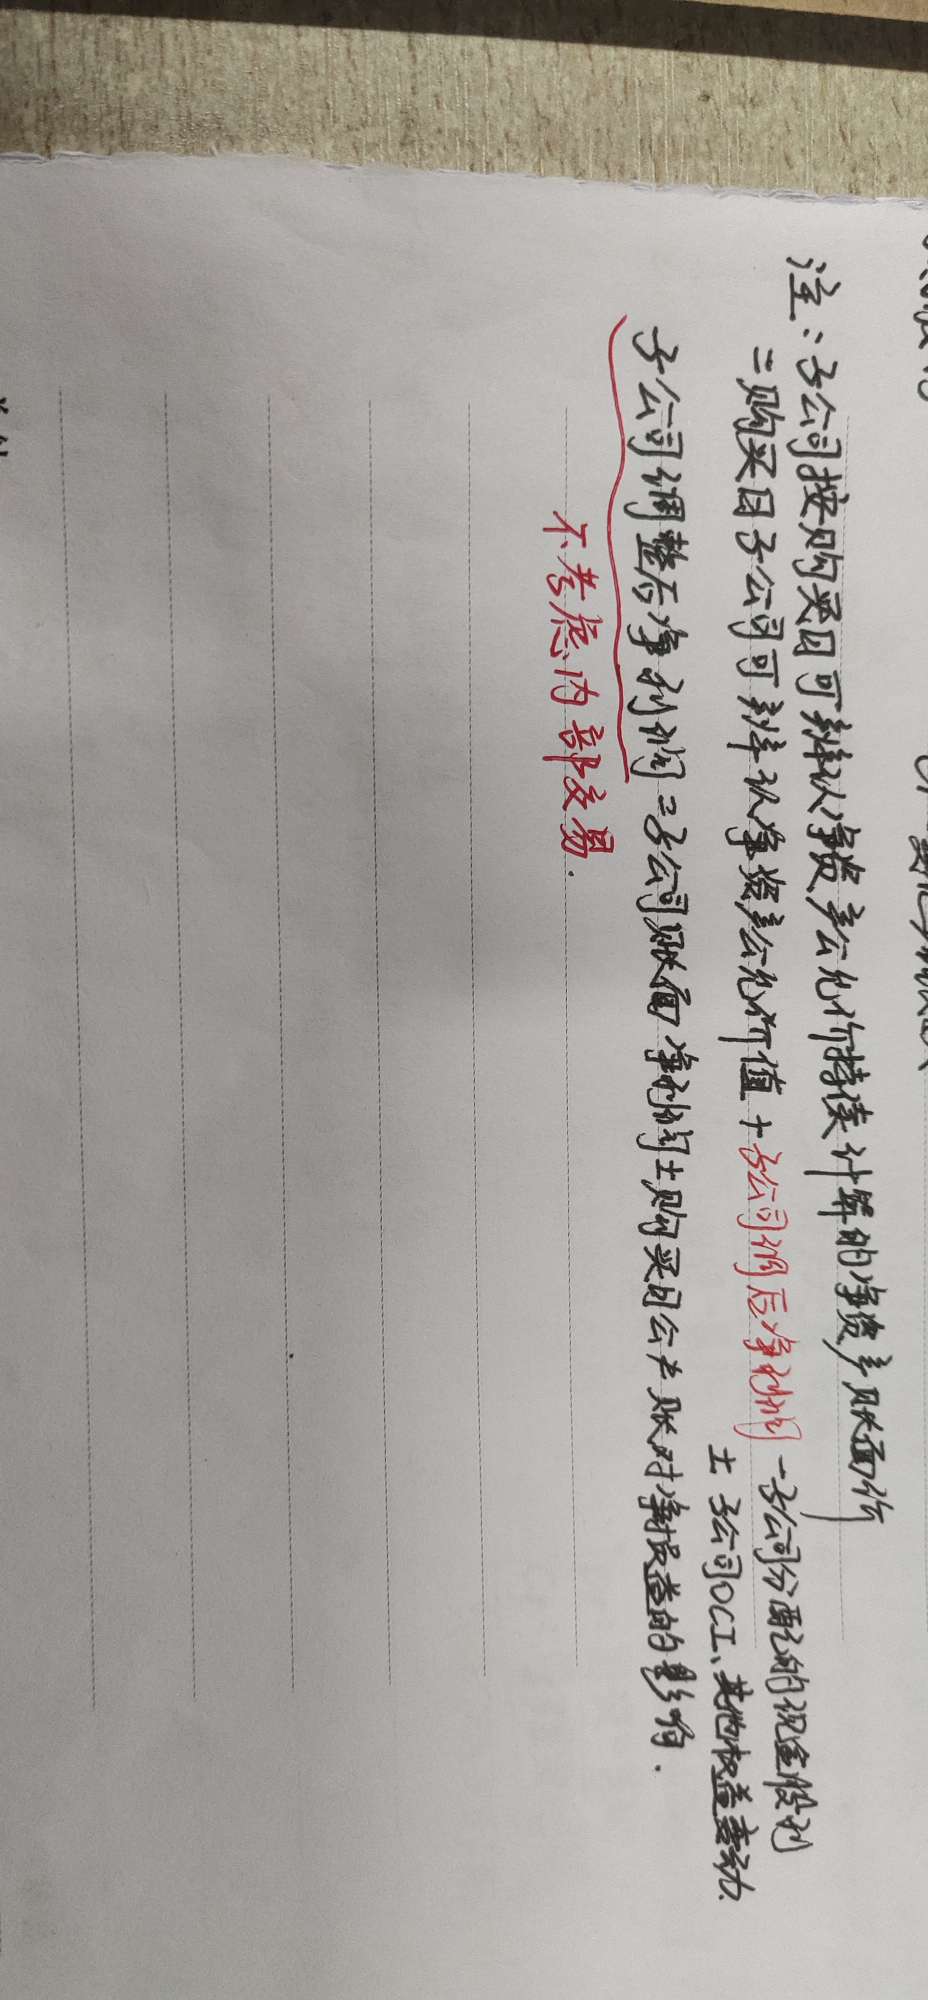 注：子公司按购买日可辨认净资产公允价持续计算的净资产账面价
=购买日子公司可辨认净资产公允价值+子公司调后净利润-子公司分配的现金股利
±子公司OCI、其他权益变动.
子公司调整后净利润=子公司账面净利润±购买日公允账对净损益的影响.
不考虑内部交易.